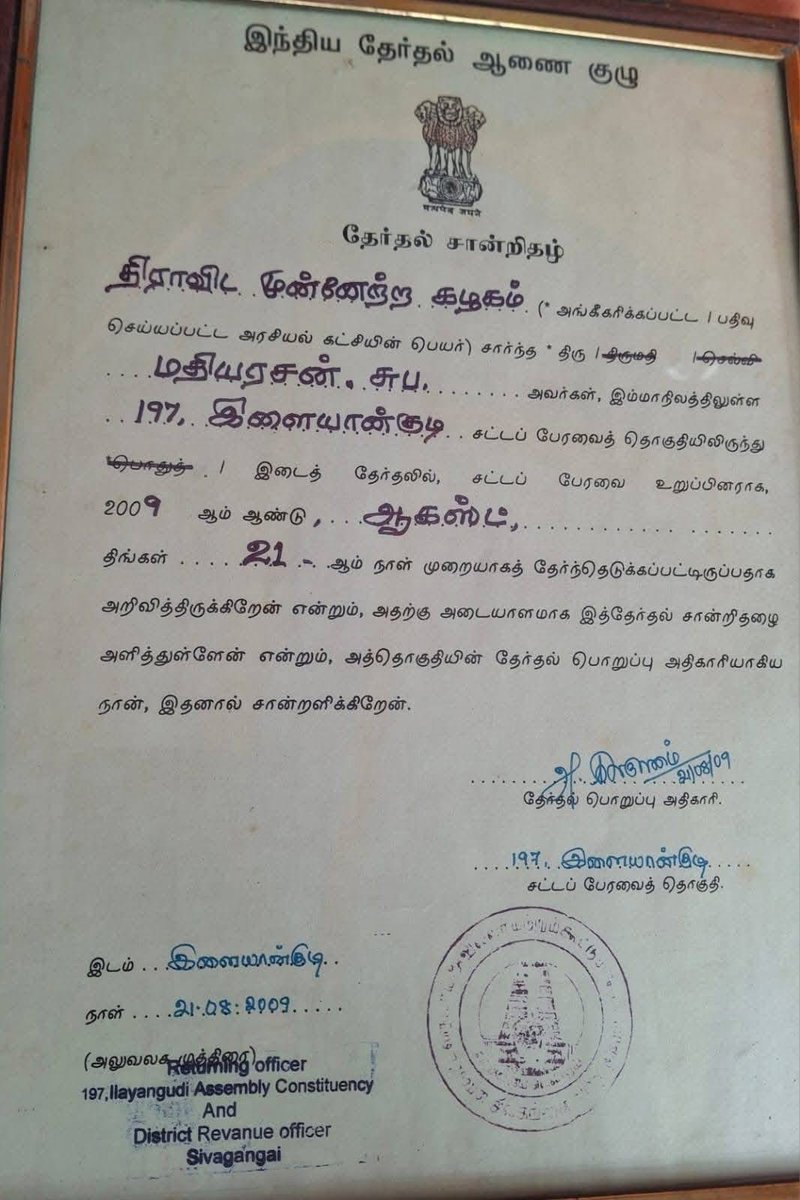 இந்திய தேர்தல் ஆணை குழு
सत्यमेव जयते
தேர்தல் சான்றிதழ்
திராவிட முன்னேற்ற கழகம் (* அங்கீகரிக்கப்பட்ட / பதிவு
செய்யப்பட்ட அரசியல் கட்சியின் பெயர்) சார்ந்த * திரு / திருமதி / செல்வி
.... மதியரசன். சுப. ......... அவர்கள், இம்மாநிலத்திலுள்ள
.. 197, இளையான்குடி .. சட்டப் பேரவைத் தொகுதியிலிருந்து
*பொதுத் . / இடைத் தேர்தலில், சட்டப் பேரவை உறுப்பினராக,
2009 ஆம் ஆண்டு, ... ஆகஸ்ட், ....................
திங்கள் .... 21 - .. ஆம் நாள் முறையாகத் தேர்ந்தெடுக்கப்பட்டிருப்பதாக
அறிவித்திருக்கிறேன் என்றும், அதற்கு அடையாளமாக இத்தேர்தல் சான்றிதழை
அளித்துள்ளேன் என்றும், அத்தொகுதியின் தேர்தல் பொறுப்பு அதிகாரியாகிய
நான், இதனால் சான்றளிக்கிறேன்.
21/08/09
தேர்தல் பொறுப்பு அதிகாரி.
.... 197, இளையான்குடி .....
சட்டப் பேரவைத் தொகுதி.
இடம் ... இளையான்குடி ..
நாள் .... 21.08.2009 .....
(அலுவலக முத்திரை)
Returning officer
197,Ilayangudi Assembly Constituency
And
District Revanue officer
Sivagangai